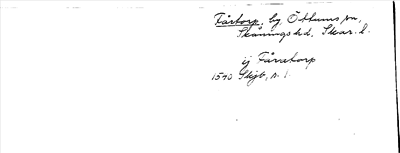 Fårtorp, by, Öttums sn,
Skånings hd. Skar. l.
ij Fårratorp
1540 Skjb, s. 1.